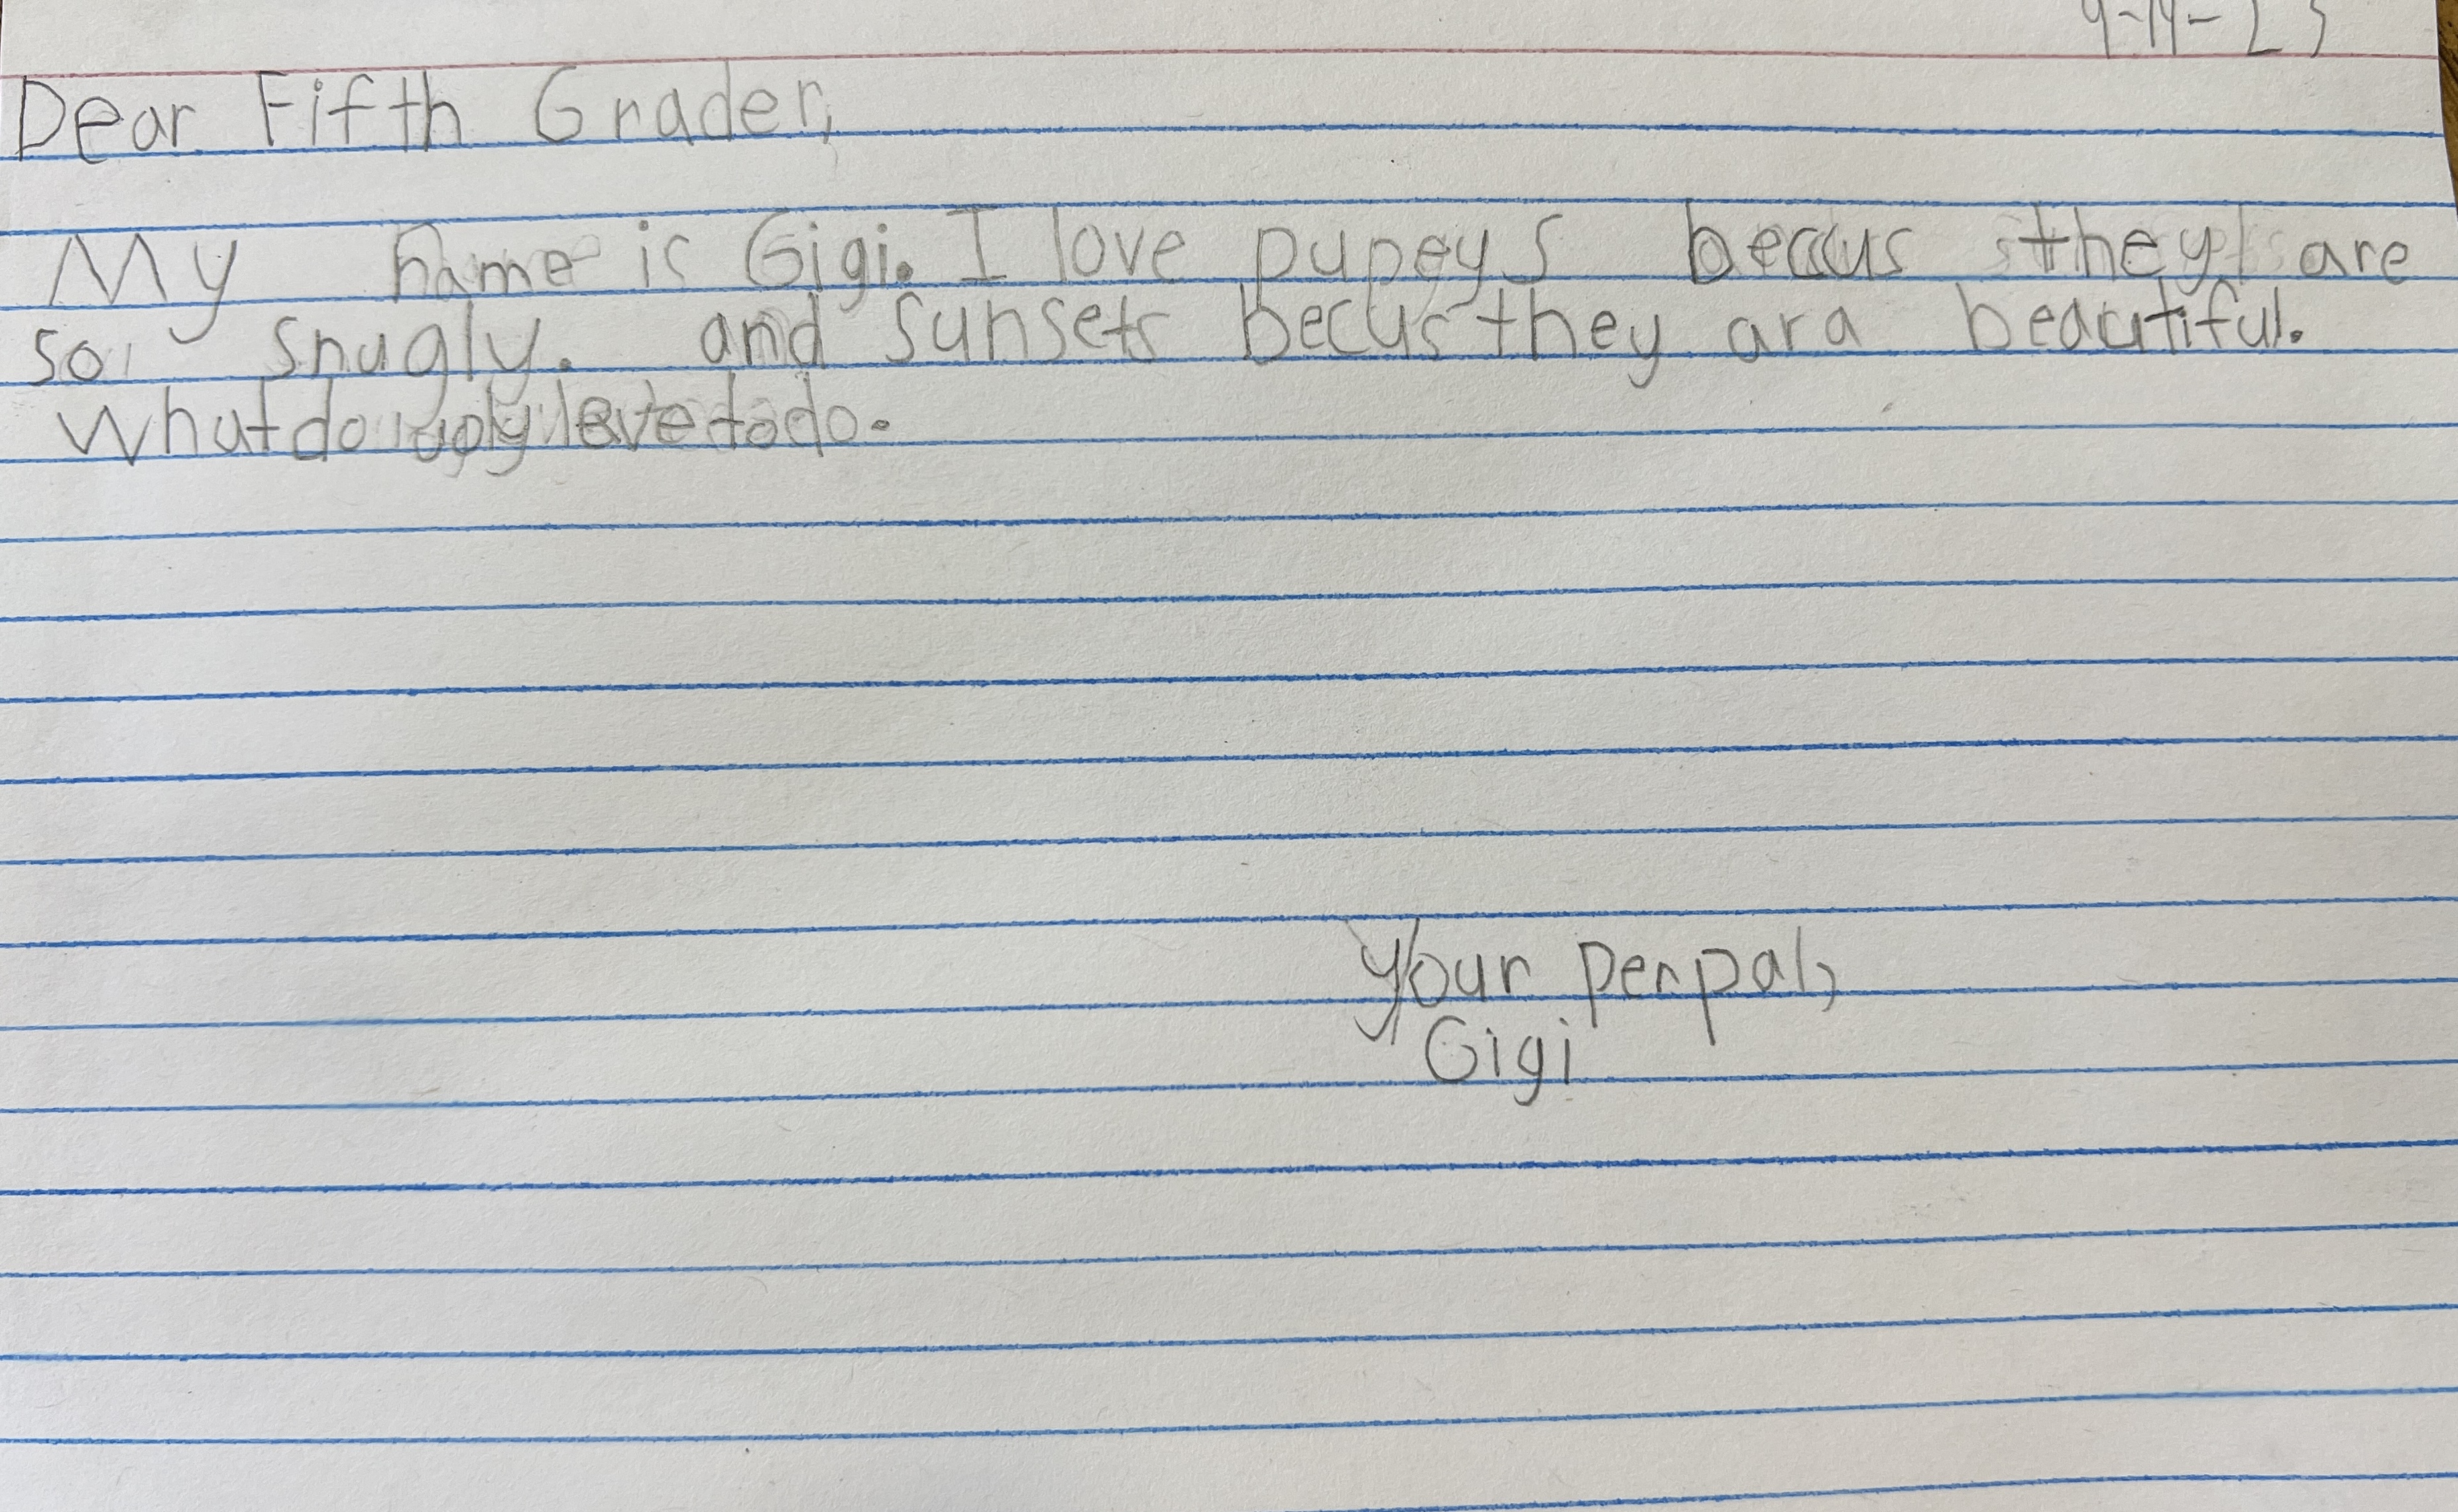 Dear Fifth Grader,
My name is Gigi. I love pupeys becus they are
so snugly. and sunsets becus they ara beautiful.
What do you love to do.
Your penpal,
Gigi